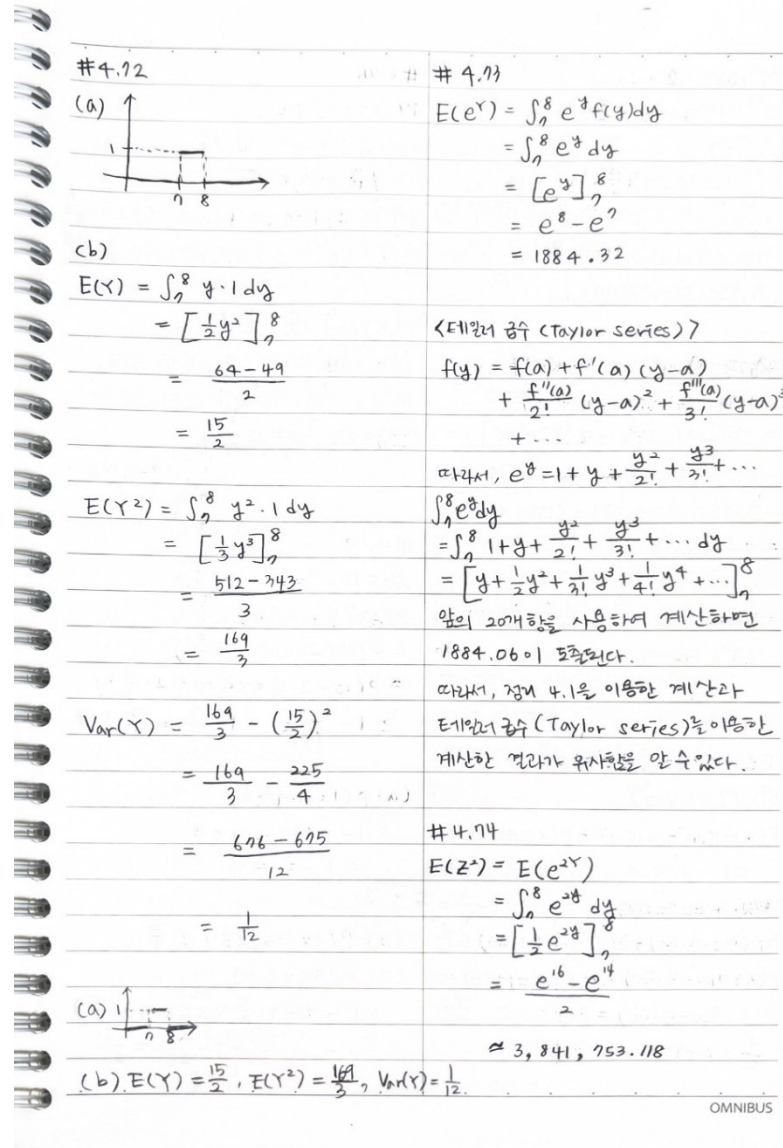 #4.72
(a)
1
7 8
(b)
E(Y) = ∫₇⁸ y·1 dy
= [½y²]₇⁸
= (64-49)/2
= 15/2
E(Y²) = ∫₇⁸ y²·1 dy
= [⅓y³]₇⁸
= (512-343)/3
= 169/3
Var(Y) = 169/3 - (15/2)²
= 169/3 - 225/4
= (676-675)/12
= 1/12
(a) 1
7 8
(b) E(Y) = 15/2, E(Y²) = 169/3, Var(Y) = 1/12
# 4.73
E(e^Y) = ∫₇⁸ e^y f(y)dy
= ∫₇⁸ e^y dy
= [e^y]₇⁸
= e⁸-e⁷
= 1884.32
<테일러 급수 (Taylor series)>
f(y) = f(a) + f'(a)(y-a)
+ f''(a)/2! (y-a)² + f'''(a)/3! (y-a)³
+ ...
따라서, e^y = 1 + y + y²/2! + y³/3! + ...
∫₇⁸ e^y dy
= ∫₇⁸ 1+y+ y²/2! + y³/3! + ... dy
= [y + ½y² + 1/3! y³ + 1/4! y⁴ + ...]₇⁸
앞의 20개 항을 사용하여 계산하면
1884.06이 도출된다.
따라서, 정의 4.1을 이용한 계산과
테일러 급수 (Taylor series)를 이용한
계산한 결과가 유사함을 알 수 있다.
#4.74
E(Z²) = E(e^2Y)
= ∫₇⁸ e^2y dy
= [½e^2y]₇⁸
= (e¹⁶-e¹⁴)/2
≃ 3,841,753.118
OMNIBUS